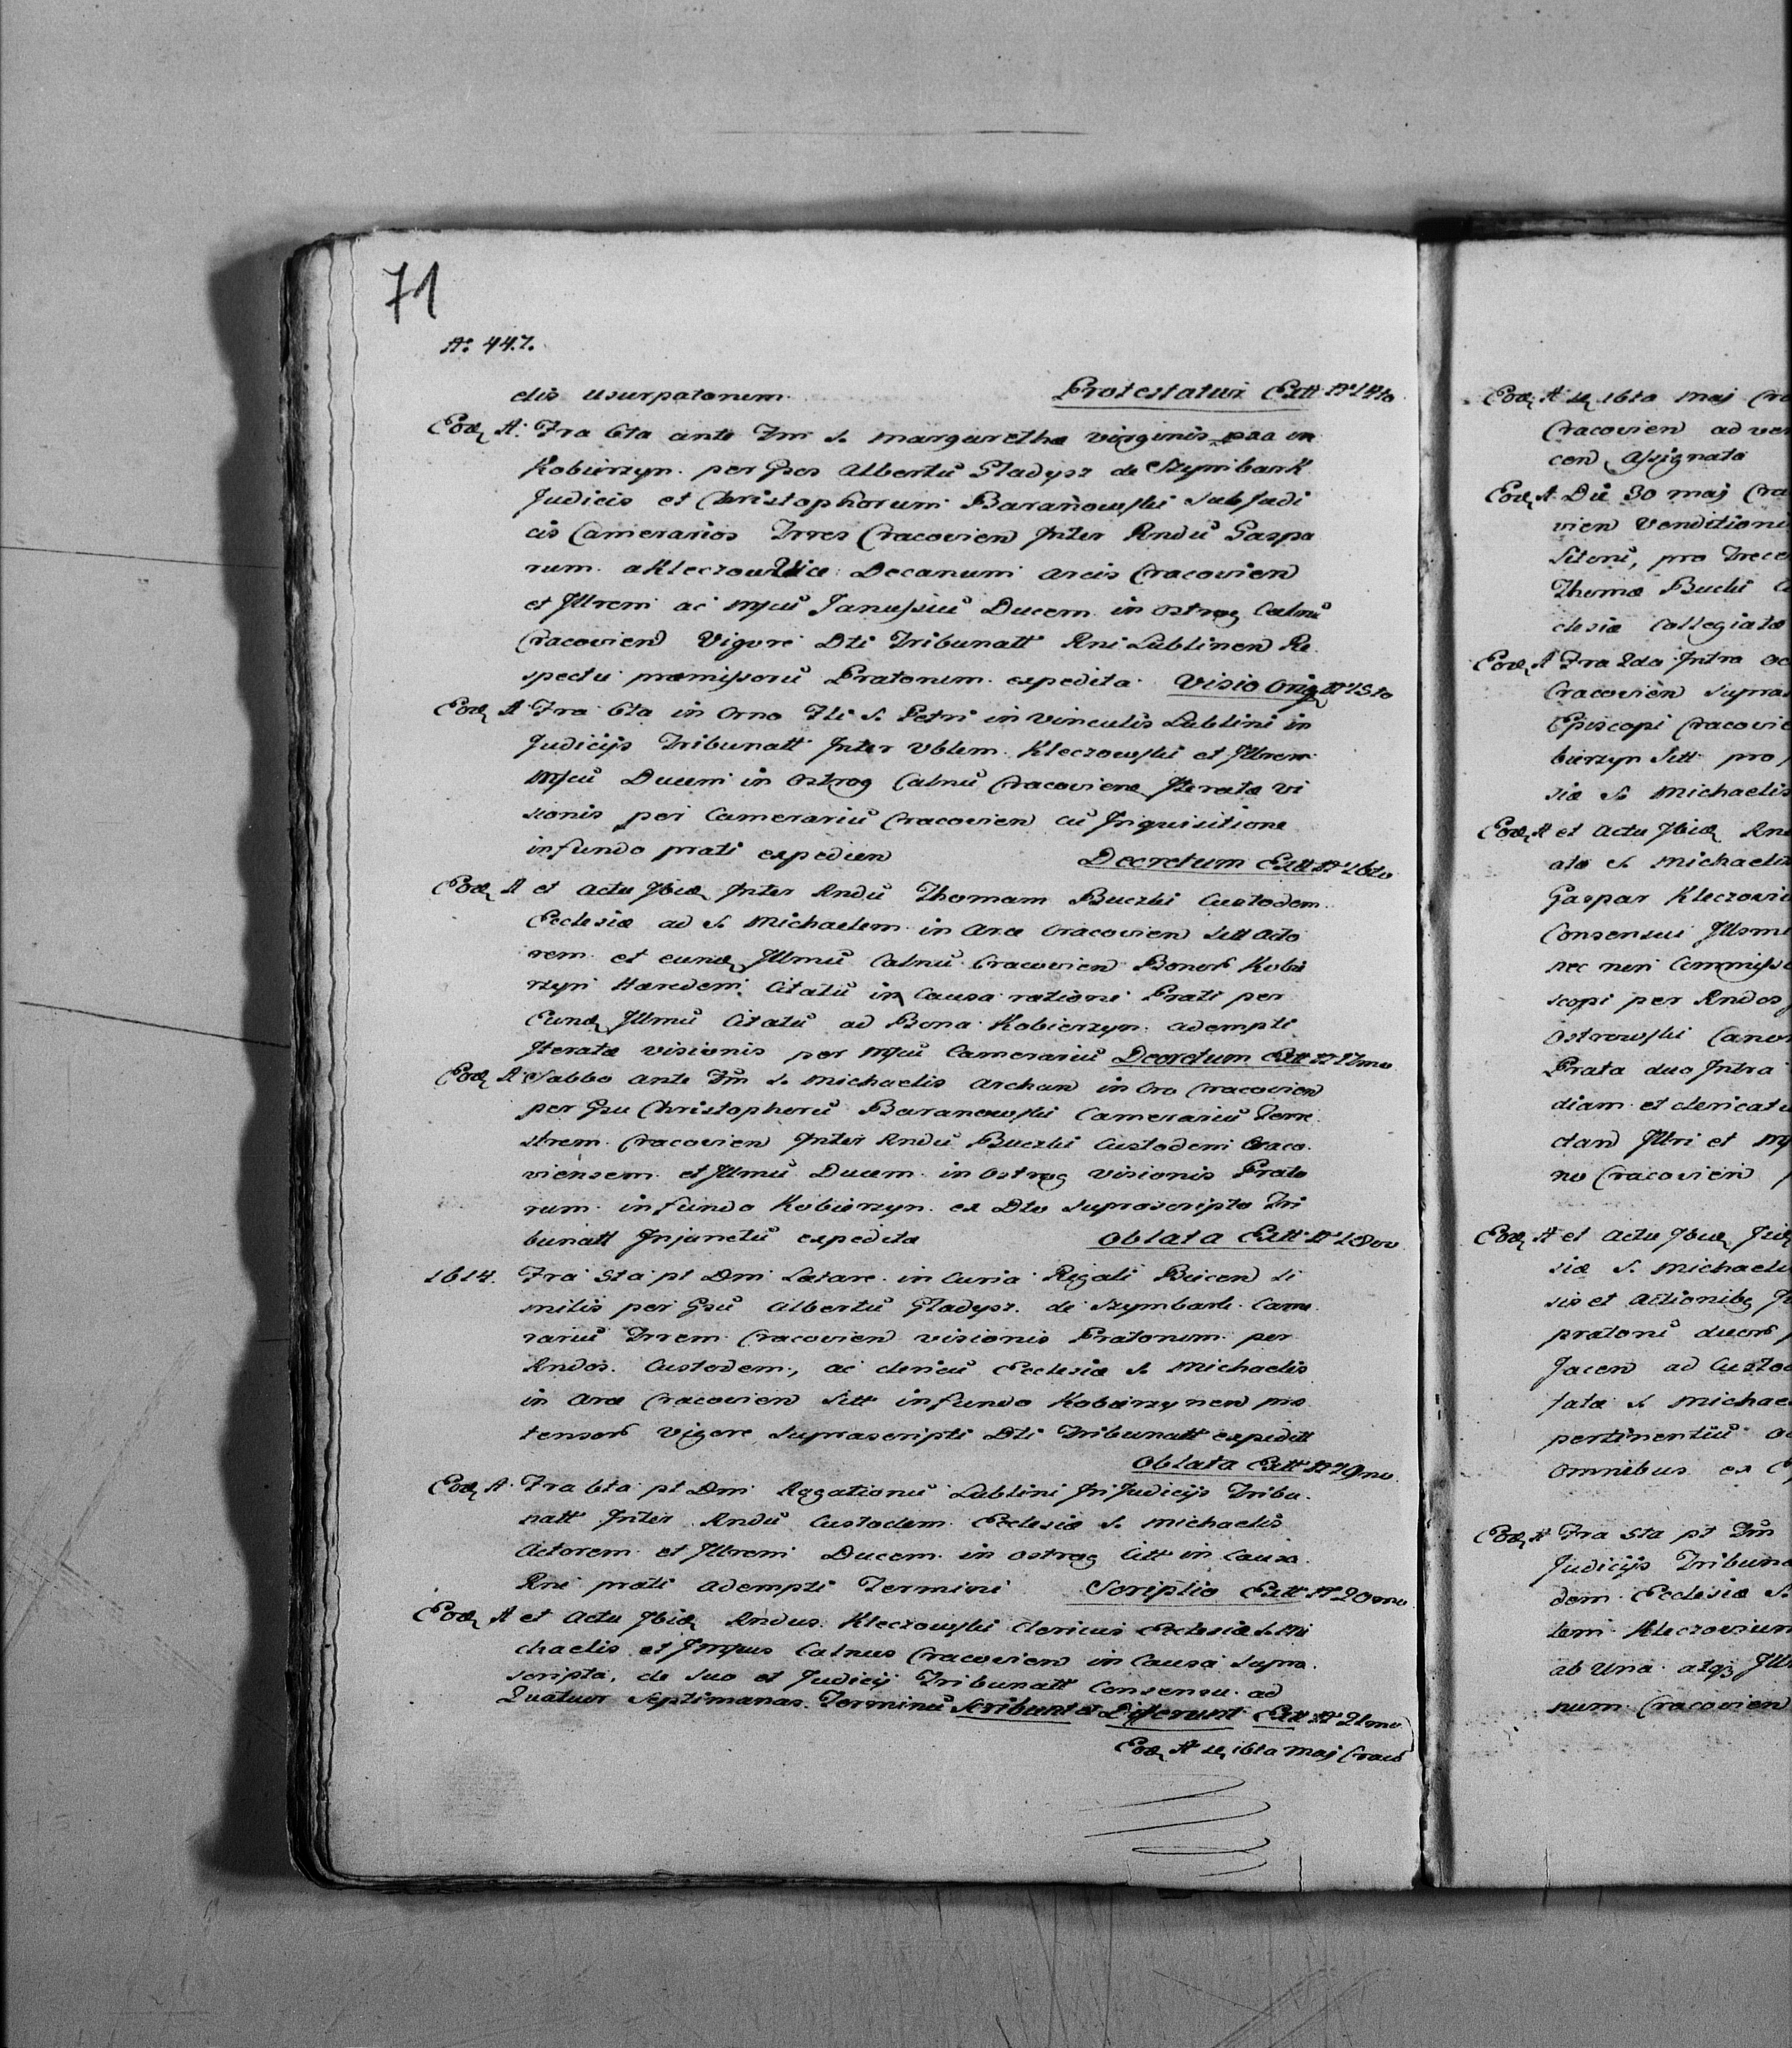 71
Aº 447.
ctis usurpatorum Protestatur Extt Nº 14to
Eod A: Fra 6ta ante Fm S. Margarethæ virginis præ in
Kobierzyn per Gsos Albertũ Gladysz de Szymbark
Judicis et Christophorum Baranowski Subjudi
cis Camerarios Trres Cracovien Inter Rndũ Gaspa
rum a Kleczow Vice Decanum arcis Cracovien
et Jllrem ac Mgcũ Janussiũ Ducem in Ostrog Catnũ
Cracovien Vigore Dti Tribunatt Rni Lublinen Re
spectu præmissorũ Pratorum expedita Visio Orig Nº 15to
Eod A Fra 6ta in Crno Fti S. Petri in vinculis Lublini in
Judicijs Tribunatt Inter Vblem Kleczowski et Jllrem
Mgcũ Ducem in Ostrog Catnũ Cracovien Iteratæ vi
sionis per Camerariũ Cracovien cũ Inquisitione
in fundo prati expedien Decretum Extt Nº 16to
Eod A et Actu Ibid Inter Rndũ Thomam Buczki Custodem
Ecclesiæ ad S. Michaelem in Arce Cracovien Sitt Acto
rem et eund Jllmũ Catnũ Cracovien Bonor Kobie
rzyn Hæredem Citatũ in Causa ratione Prati per
Eund Jllmũ Citatũ ad Bona Kobierzyn adempti
Iteratæ visionis per Mgcũ Camerariũ Decretum Extt Nº 17mo
Eod A Sabbo ante Fm S. Michaelis Archan in Cro Cracovien
per Gsũ Christophorũ Baranowski Camerariũ Terre
strem Cracovien Inter Rndũ Buczki Custodem Craco
viensem et Jllmũ Ducem in Ostrog visionis Prato
rum in fundo Kobierzyn ex Dto Suprascripto Tri
bunatt Injunctũ expedita Oblata Extt Nº 18vo
1614. Fra 5ta pt Dm Lætare in Curia Regali Biecen Si
milis per Gsũ Albertũ Gladysz de Szymbark Came
rariũ Trrem Cracovien visionis Pratorum per
Rndos Custodem, ac clericũ Ecclesiæ S. Michaelis
in Arce Cracovien Sitt in fundo Kobierzynen præ
tensor vigore Suprascripti Dti Tribunatt expeditt
Oblata Extt Nº 19no
Eod A Fra 6ta pt Dm Rogationũ Lublini In Judicijs Tribu
natt Inter Rndũ Custodem Ecclesiæ S. Michaelis
Actorem et Jllrem Ducem in Ostrog Citt in Causa
Rne prati adempti Termini Scriptio Extt Nº 20mo
Eod A et Actu Ibid Rndus Kleczowski Clericus Ecclesiæ S. Mi
chaelis et Catnus Cracovien in Causa Supra
scripta, de Suo et Judicij Tribunatt Consensu ad
Quatuor Septimanas Terminũ Scribunt et Differunt Extt Nº 21mo
Eod A 16ta Maj Craco
Eod A 16ta Maj
Cracovien ad
cen Assignata
Eod A Die 30 Maj
vien Venditioni
sitorũ, pro
Thomæ Buczki
clesiæ Collegiatæ
Eod A Fra 2da Intra
Cracovien
Episcopi
bierzyn Sitt pro
siæ S. Michaelis
Eod A et Actu Ibid
S. Michaelis
Gaspar
Consensu
nec non
scopi per Rndos
Ostrowski
Prata duo Intra
diam et
Jllri et
no Cracovien
Eod A et Actu Ibid
siæ S.
sis et Actionibq
pratorũ
Jacen ad
S.
pertinentiũ
omnibus ex
Eod A Fra 5ta pt Fm
Judicijs
dem Ecclesiæ S.
tem
ab Una atqz
num Cracovien